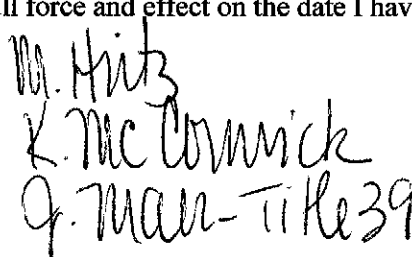 ll force and effect on the date I hav
M. Hintz
K. McCormick
J. Marr-Title 39